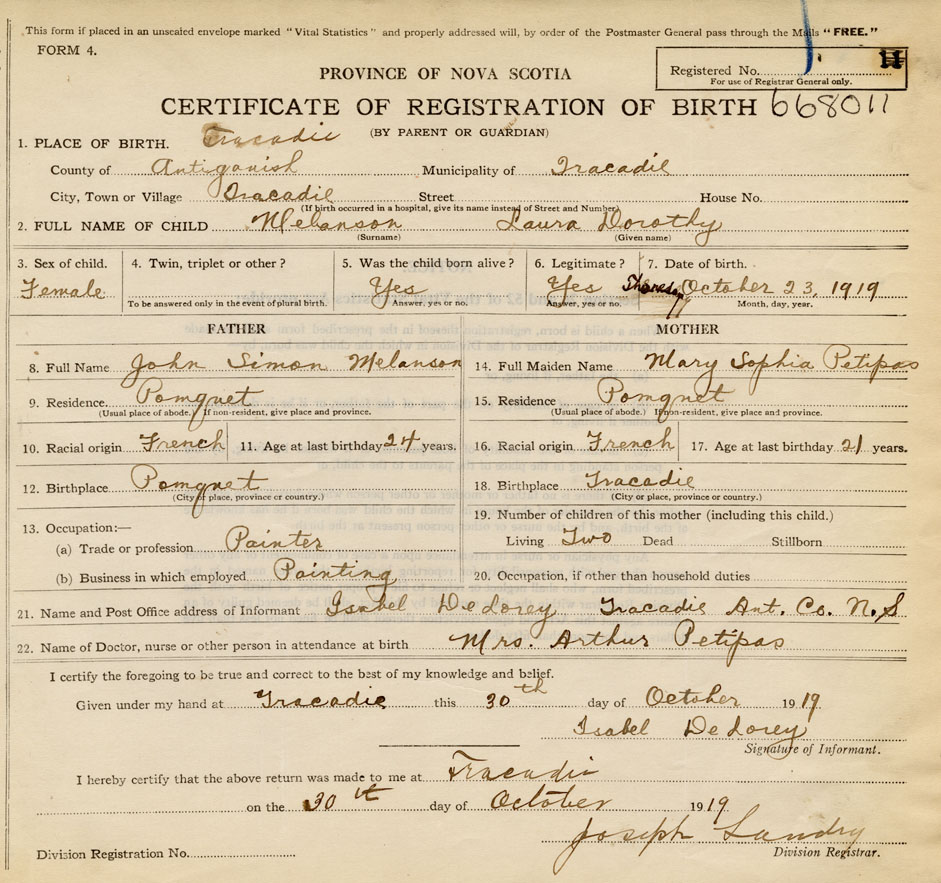 This form if placed in an unsealed envelope marked "Vital Statistics" and properly addressed will, by order of the Postmaster General pass through the Mails "FREE."
FORM 4.
Registered No. 11
For use of Registrar General only.
PROVINCE OF NOVA SCOTIA
CERTIFICATE OF REGISTRATION OF BIRTH 668011
(BY PARENT OR GUARDIAN)
1. PLACE OF BIRTH. Tracadie
County of Antigonish Municipality of Tracadie
City, Town or Village Tracadie Street House No.
(If birth occurred in a hospital, give its name instead of Street and Number)
2. FULL NAME OF CHILD Melanson Laura Dorothy
(Surname) (Given name)
3. Sex of child. 4. Twin, triplet or other? 5. Was the child born alive? 6. Legitimate? 7. Date of birth.
Female Yes Yes Thursday October 23, 1919
To be answered only in the event of plural birth. Answer, yes or no. Answer, yes or no. Month, day, year.
FATHER MOTHER
8. Full Name John Simon Melanson 14. Full Maiden Name Mary Sophia Petipas
9. Residence. Pomquet 15. Residence Pomquet
(Usual place of abode.) If non-resident, give place and province. (Usual place of abode.) If non-resident, give place and province.
10. Racial origin French 11. Age at last birthday 24 years. 16. Racial origin French 17. Age at last birthday 21 years.
12. Birthplace Pomquet 18. Birthplace Tracadie
(City or place, province or country.) (City or place, province or country.)
13. Occupation:— 19. Number of children of this mother (including this child.)
(a) Trade or profession Painter Living Two Dead Stillborn
(b) Business in which employed Painting 20. Occupation, if other than household duties
21. Name and Post Office address of Informant Isabel Dedorey Tracadie Ant. Co. N.S
22. Name of Doctor, nurse or other person in attendance at birth Mrs. Arthur Petipas
I certify the foregoing to be true and correct to the best of my knowledge and belief.
Given under my hand at Tracadie this 30th day of October 1919.
Isabel Dedorey
Signature of Informant.
I hereby certify that the above return was made to me at Tracadie
on the 30th day of October 1919.
Joseph Landry
Division Registration No. Division Registrar.